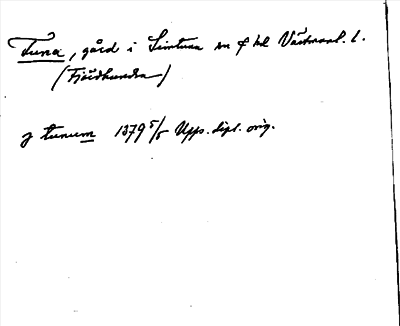 Tuna, gård i Simtuna sn f hd Västmanl. l.
(Fjädhundra)
j tunum 1379 5/5 Upps. dipl. orig.